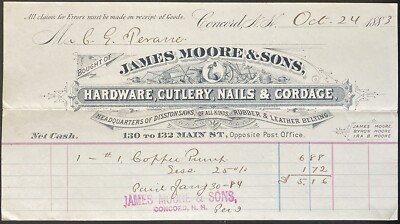 All claims for Errors must be made on receipt of Goods.
Concord, N. H. Oct. 24 1883
Mr C. G.
BOUGHT OF
JAMES MOORE & SONS,
HARDWARE, CUTLERY, NAILS & CORDAGE
HEADQUARTERS OF DISSTON SAWS, OF ALL KINDS, RUBBER & LEATHER BELTING
JAMES MOORE
BYRON MOORE
IRA B. MOORE
Net Cash.
130 TO 132 MAIN ST., Opposite Post Office.
1 - #1 Copper Pump 6 88
Less 25% 1 72
$ 5,16
Paid Jany 30 - 84
JAMES MOORE & SONS,
CONCORD, N. H.
Per